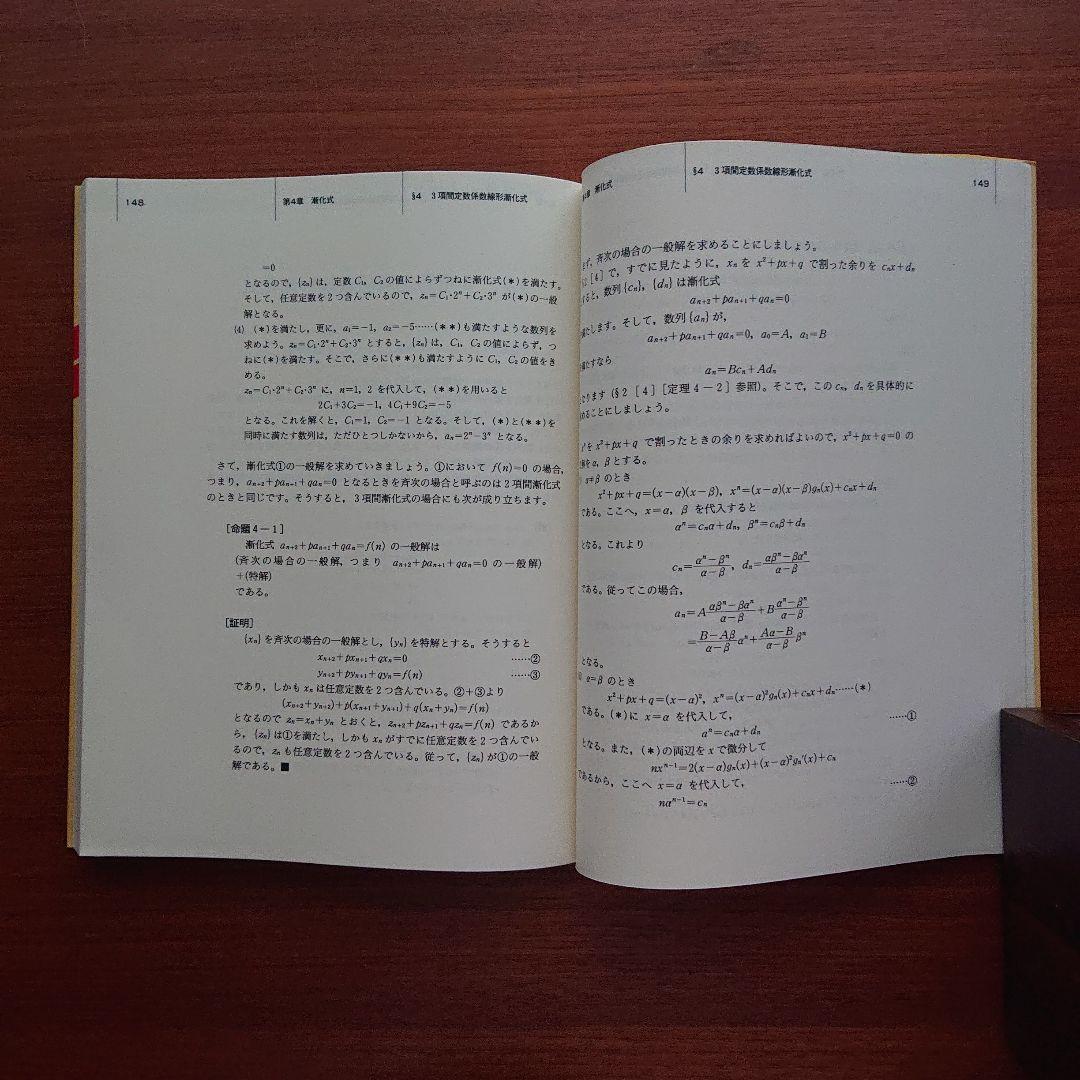 148
第4章 漸化式
§4 3項間定数係数線形漸化式
=0
となるので, {zₙ}は, 定数 C₁, C₂の値によらずつねに漸化式(*)を満たす。
そして, 任意定数を2つ含んでいるので, zₙ=C₁·2ⁿ+C₂·3ⁿ が(*)の一般
解となる。
(4) (*)を満たし, 更に, a₁=−1, a₂=−5……(**)も満たすような数列を
求めよう。zₙ=C₁·2ⁿ+C₂·3ⁿ とすると, {zₙ}は, C₁, C₂の値によらず, つ
ねに(*)を満たす。そこで, さらに(**)も満たすように C₁, C₂の値をき
める。
zₙ=C₁·2ⁿ+C₂·3ⁿ に, n=1, 2 を代入して, (**)を用いると
2C₁+3C₂=−1, 4C₁+9C₂=−5
となる。これを解くと, C₁=1, C₂=−1 となる。そして, (*)と(**)を
同時に満たす数列は, ただひとつしかないから, aₙ=2ⁿ−3ⁿ となる。
さて, 漸化式①の一般解を求めていきましょう。①において f(n)=0 の場合,
つまり, aₙ₊₂+paₙ₊₁+qaₙ=0 となるときを斉次の場合と呼ぶのは2項間漸化式
のときと同じです。そうすると, 3項間漸化式の場合にも次が成り立ちます。
[命題4−1]
漸化式 aₙ₊₂+paₙ₊₁+qaₙ=f(n) の一般解は
(斉次の場合の一般解, つまり aₙ₊₂+paₙ₊₁+qaₙ=0 の一般解)
+(特解)
である。
[証明]
{xₙ}を斉次の場合の一般解とし, {yₙ}を特解とする。そうすると
xₙ₊₂+pxₙ₊₁+qxₙ=0 ……②
yₙ₊₂+pyₙ₊₁+qyₙ=f(n) ……③
であり, しかも xₙ は任意定数を2つ含んでいる。②+③より
(xₙ₊₂+yₙ₊₂)+p(xₙ₊₁+yₙ₊₁)+q(xₙ+yₙ)=f(n)
となるので zₙ=xₙ+yₙ とおくと, zₙ₊₂+pzₙ₊₁+qzₙ=f(n) であるか
ら, {zₙ}は①を満たし, しかも xₙ がすでに任意定数を2つ含んでい
るので, zₙ も任意定数を2つ含んでいる。従って, {zₙ}が①の一般
解である。■
章 漸化式
§4 3項間定数係数線形漸化式
149
ず, 斉次の場合の一般解を求めることにしましょう。
[4]で, すでに見たように, xₙ を x²+px+q で割った余りを cₙx+dₙ
ると, 数列{cₙ}, {dₙ}は漸化式
aₙ₊₂+paₙ₊₁+qaₙ=0
満たします。そして, 数列{aₙ}が,
aₙ₊₂+paₙ₊₁+qaₙ=0, a₀=A, a₁=B
満たすなら
aₙ=Bcₙ+Adₙ
なります(§2 [4] [定理4−2]参照)。そこで, この cₙ, dₙ を具体的に
めることにしましょう。
ⁿを x²+px+q で割ったときの余りを求めればよいので, x²+px+q=0 の
解を α, β とする。
α≠β のとき
x²+px+q=(x−α)(x−β), xⁿ=(x−α)(x−β)gₙ(x)+cₙx+dₙ
である。ここへ, x=α, β を代入すると
αⁿ=cₙα+dₙ, βⁿ=cₙβ+dₙ
となる。これより
cₙ=(αⁿ−βⁿ)/(α−β), dₙ=(αβⁿ−βαⁿ)/(α−β)
である。従ってこの場合,
aₙ=A(αβⁿ−βαⁿ)/(α−β)+B(αⁿ−βⁿ)/(α−β)
=(B−Aβ)/(α−β) αⁿ+(Aα−B)/(α−β) βⁿ
となる。
α=β のとき
x²+px+q=(x−α)², xⁿ=(x−α)²gₙ(x)+cₙx+dₙ……(*)
である。(*)に x=α を代入して,
αⁿ=cₙα+dₙ ……①
となる。また, (*)の両辺を x で微分して
nxⁿ⁻¹=2(x−α)gₙ(x)+(x−α)²gₙ′(x)+cₙ
であるから, ここへ x=α を代入して,
nαⁿ⁻¹=cₙ ……②